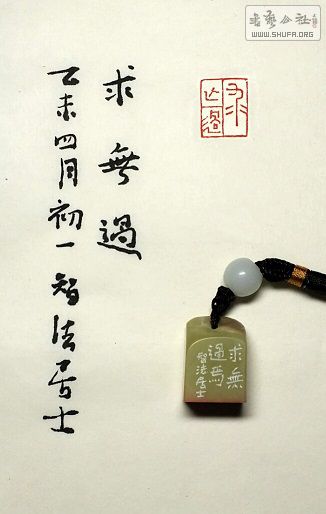 公社
WWW.SHUFA.ORG
求無過
乙未四月初一智法居士
求無
過焉
智法居士